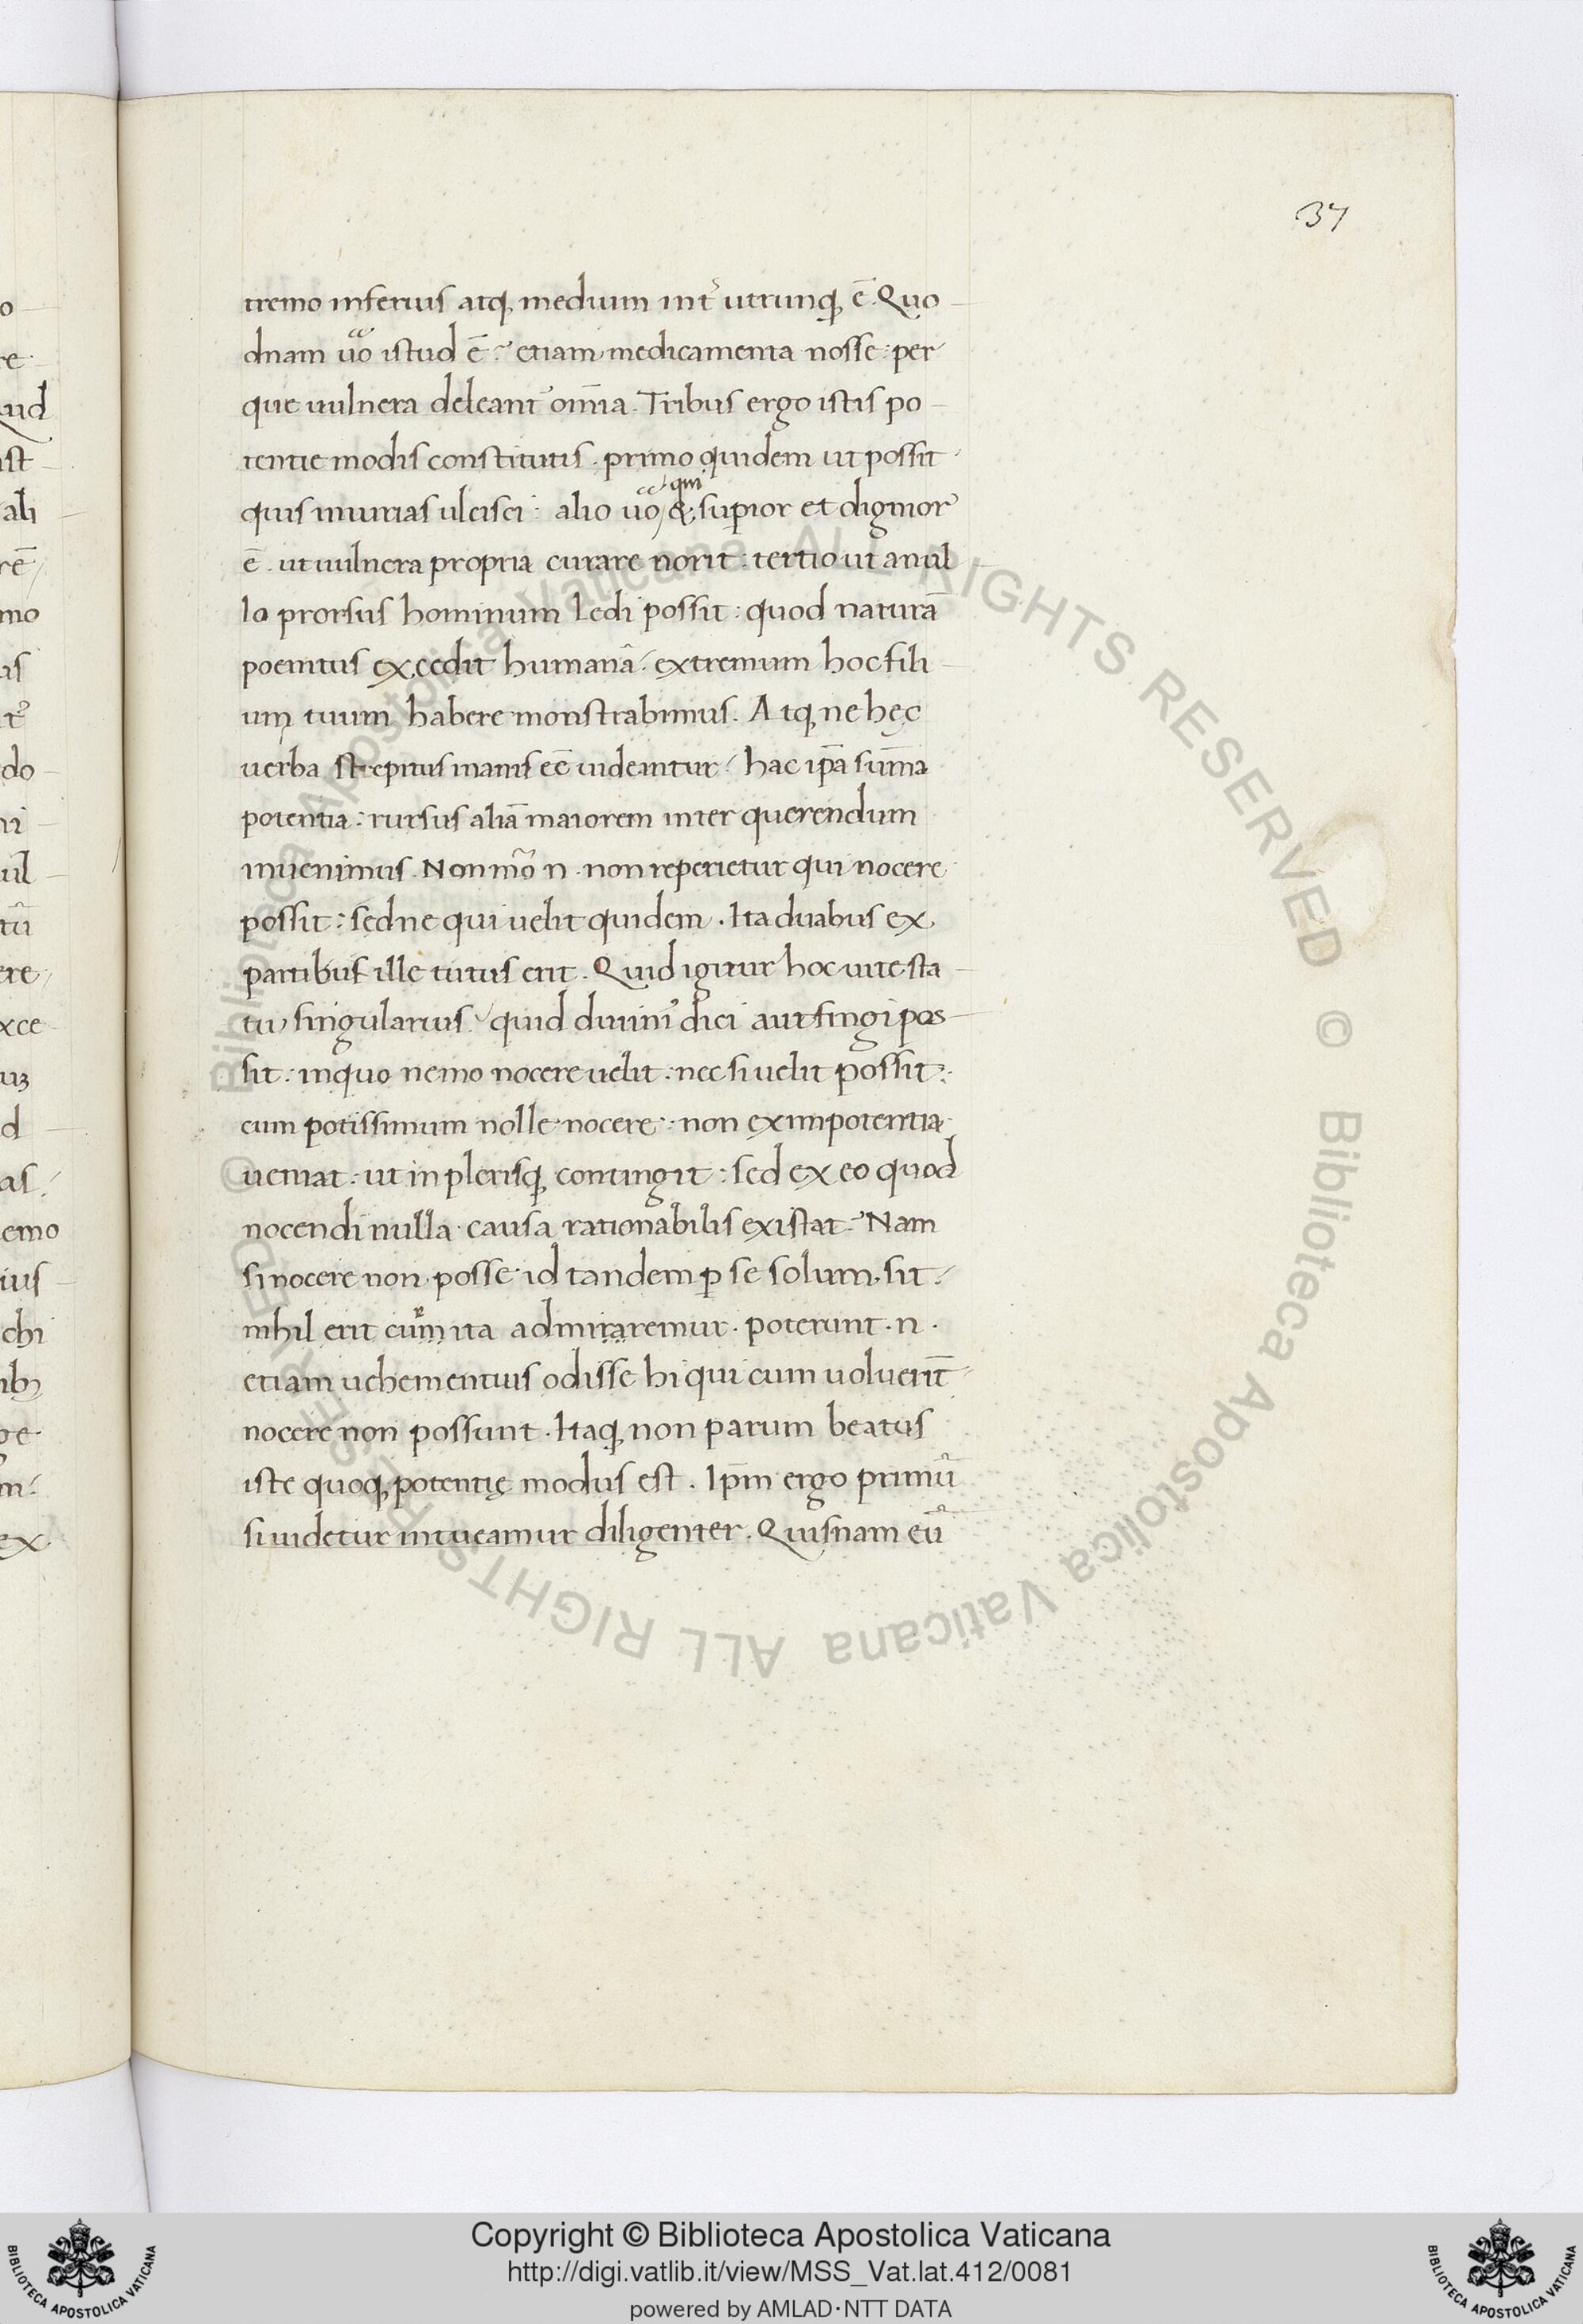 37
tremo inferius atq; medium int᷑ utrunq; ē. Quo
dnam uo᷑ istud ē? etiam medicamenta nosse: per
que uulnera deleant᷑ om̄ia. Tribus ergo istis po
tentie modis constitutis. primo quidem ut possit
quis iniurias ulcisci: alio uo᷑ qm̄ &; supior et dignior
ē. ut uulnera propria curare norit: tertio ut a nul
lo prorsus hominum ledi possit: quod naturā
poenitus excedit humanā: extremum hoc fili
um tuum habere monstrabimus. Atq; ne hęc
uerba strepitus inanis eē uideantur: hac ip̄a sum̄a
potentia: rursus aliā maiorem inter querendum
inuenimus. Non mō n. non reperietur qui nocere
possit: sed ne qui uelit quidem. Ita duabus ex
partibus ille tutus erit. Quid igitur hoc uite sta
tu, singularius? quid diuini᷑ dici aut fingi pos
sit: in quo nemo nocere uelit: nec si uelit possit:
cum potissimum nolle nocere: non ex impotentia
ueniat: ut in plerisq; contingit: sed ex eo quod
nocendi nulla causa rationabilis existat? Nam
si nocere non posse id tandem p se solum sit:
nihil erit cur ita admiraremur. poterunt. n.
etiam uehementius odisse hi qui cum uoluerīt
nocere non possunt. Itaq; non parum beatus
iste quoq; potentię modus est. Ip̄m ergo primū
si uidetur intueamur diligenter. Quisnam eū
o
re
uid
ist
ali
rē
mo
us
do
ni
uil
tū
ere
xce
d
as
emo
ius
chi
ge
m
ex
© Biblioteca Apostolica Vaticana ALL RIGHTS RESERVED © Biblioteca Apostolica Vaticana ALL RIGHTS RESERVED
BIBLIOTECA APOSTOLICA VATICANA
Copyright © Biblioteca Apostolica Vaticana
http://digi.vatlib.it/view/MSS_Vat.lat.412/0081
powered by AMLAD·NTT DATA
BIBLIOTECA APOSTOLICA VATICANA